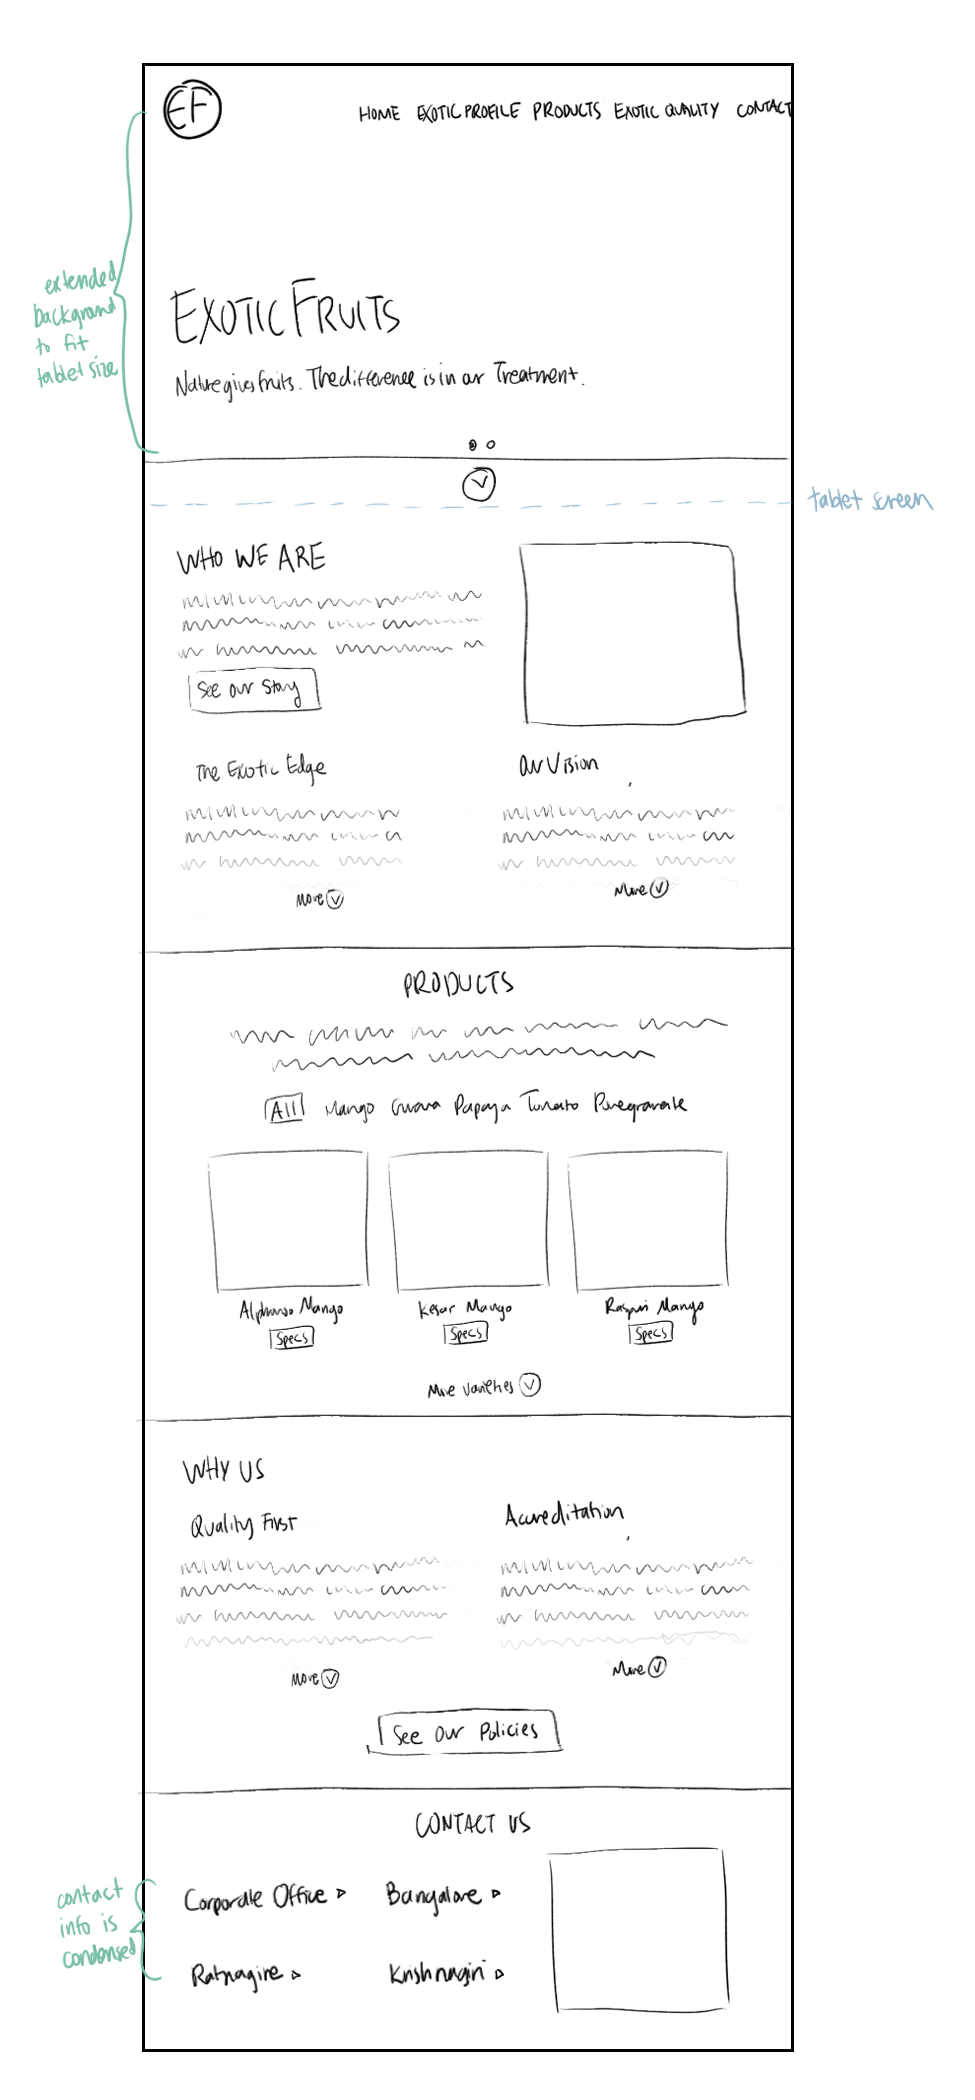 EF
HOME EXOTIC PROFILE PRODUCTS EXOTIC QUALITY CONTACT
extended
background
to fit
tablet size
EXOTIC FRUITS
Nature gives fruits. The difference is in our Treatment.
tablet screen
WHO WE ARE
See our Story
The Exotic Edge
Our Vision
More
More
PRODUCTS
All Mango Guava Papaya Tomato Pomegranate
Alphonso Mango
Kesar Mango
Raspuri Mango
Specs
Specs
Specs
More varieties
WHY US
Quality First
Accreditation
More
More
See Our Policies
CONTACT US
contact
info is
condensed
Corporate Office
Bangalore
Ratnagire
Krishnagiri